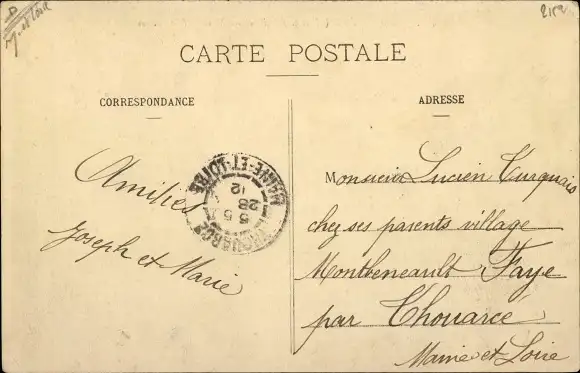 CARTE POSTALE
CORRESPONDANCE
Amitiés
Joseph et Marie
ADRESSE
Monsieur Lucien Turquais
chez ses parents village
Montbeneault Faye
par Thouarcé
Maine et Loire
THOUARCÉ
5
28
12
MAINE-ET-LOIRE